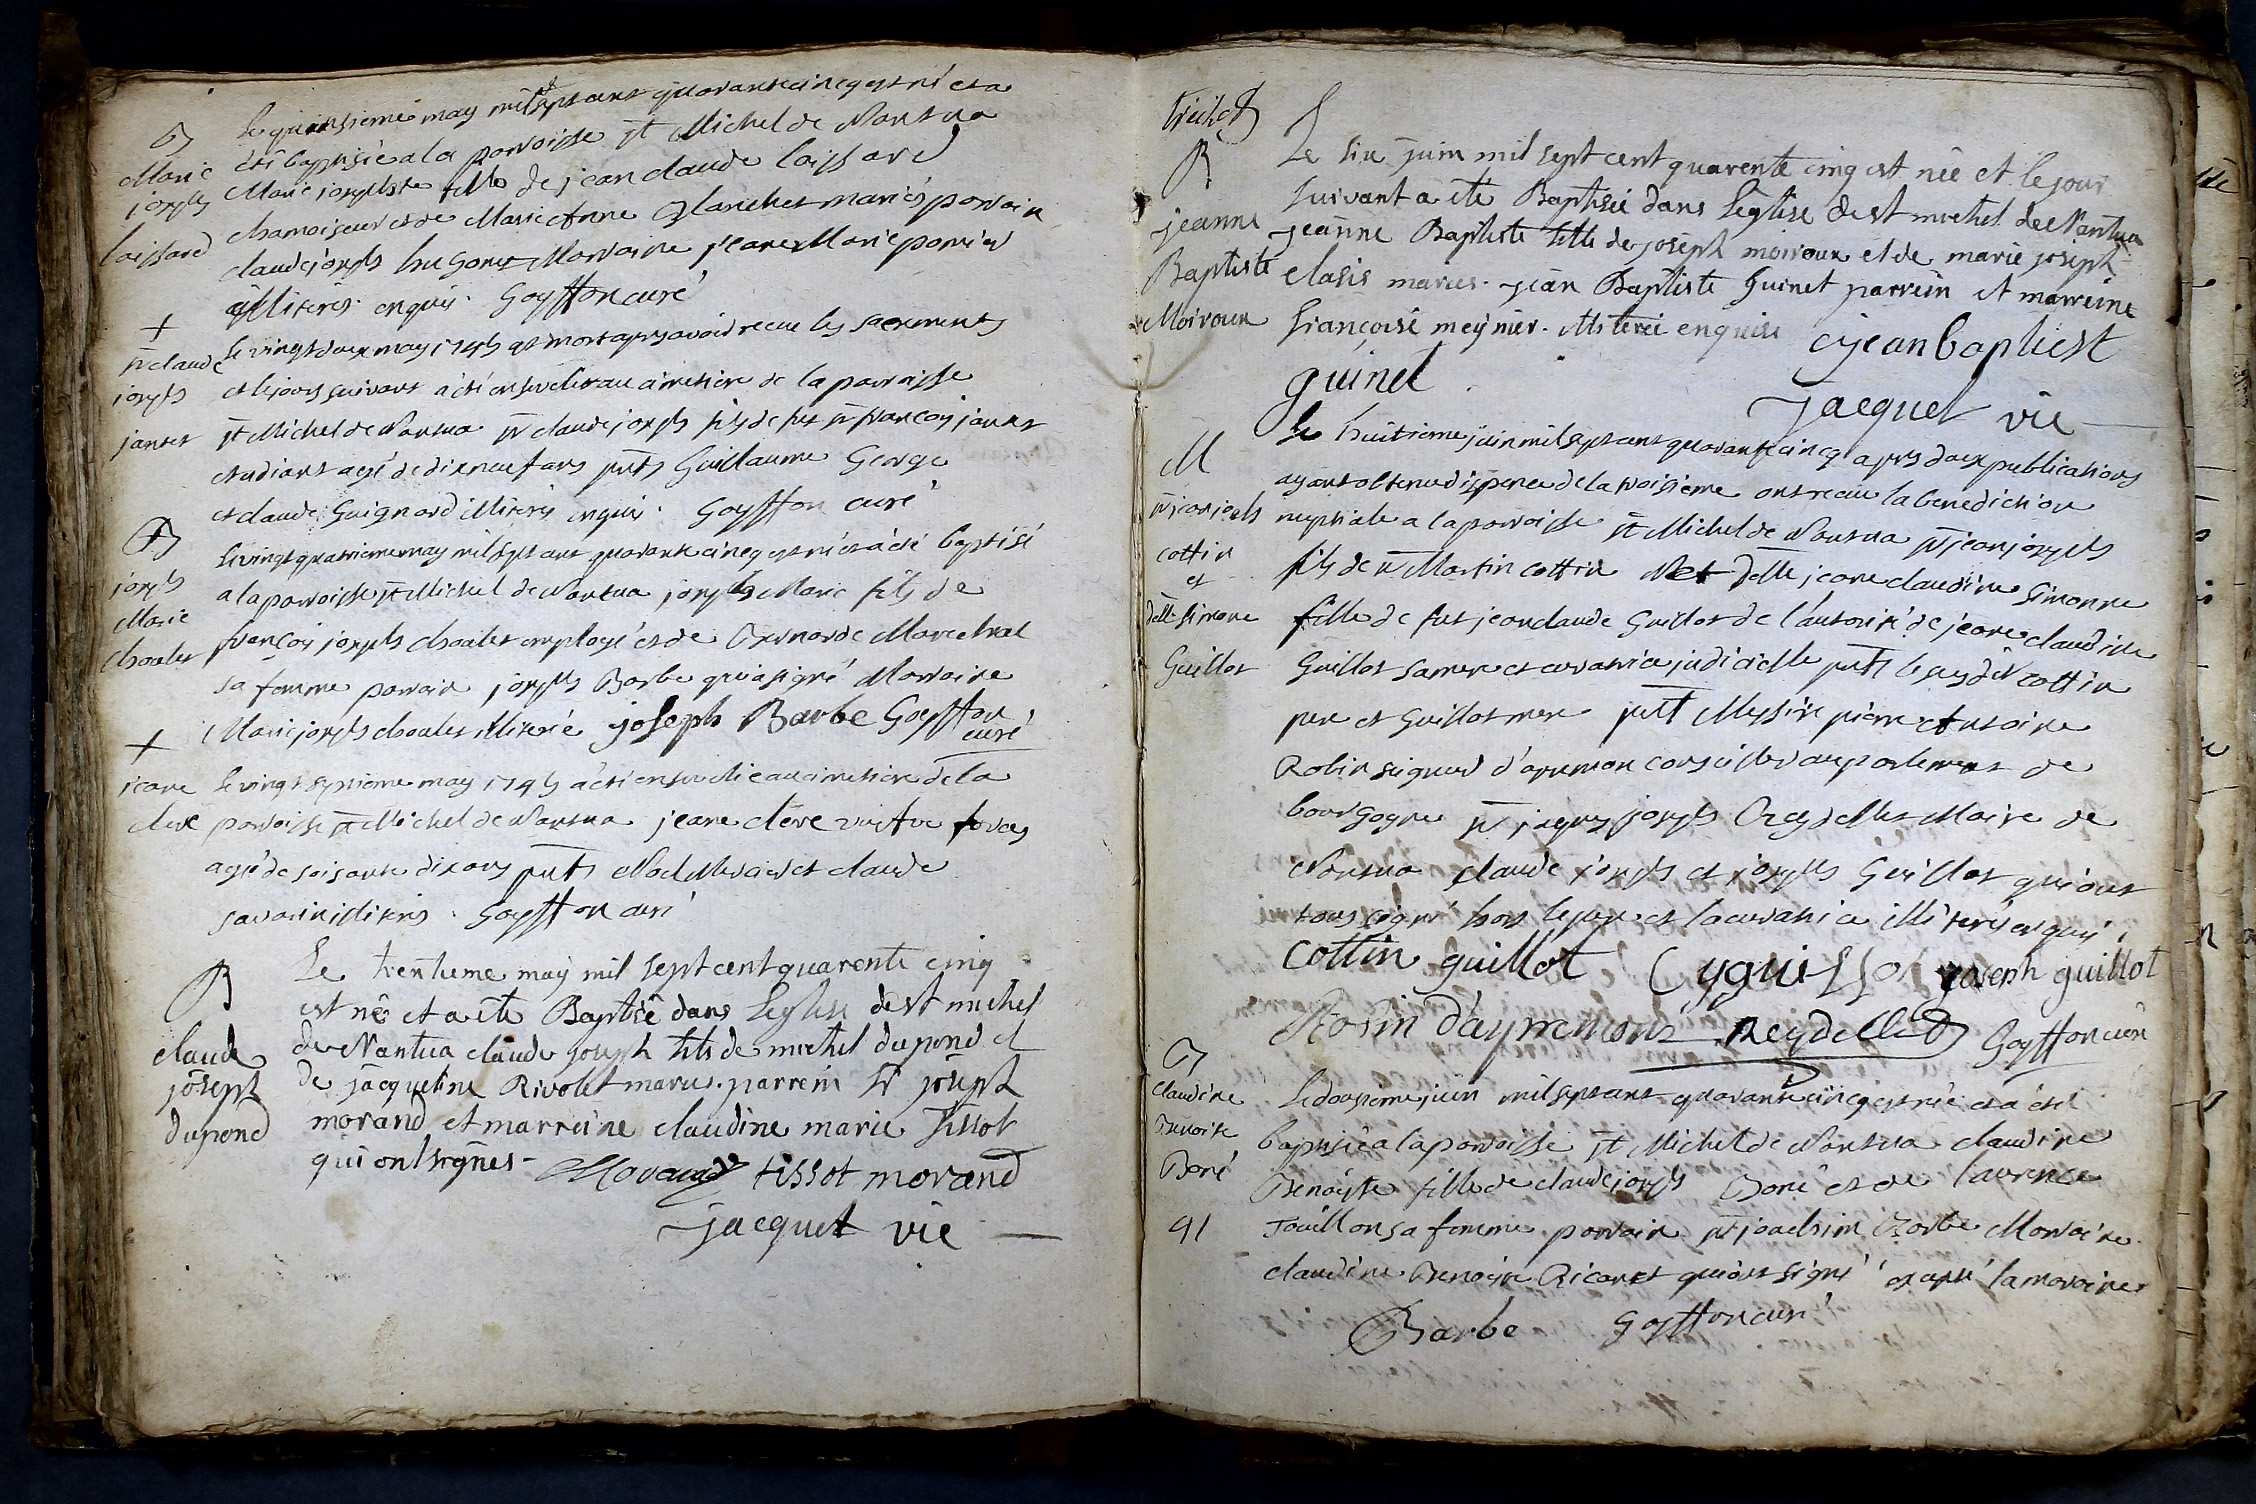 B
Marie
joseph
laissard
Le quinsieme may mil sept cent quarante cinq est né et a
été baptisée a la parroisse st Michel de Nantua
Marie josephte fille de jean claude laissard
chamoiseur et de Marie Anne Blanchet mariés parrain
claude joseph hugonet Marraine jeane Marie perrier
illiterés enquis. Goyffon curé
+
sr claude
joseph
jantet
Le vingt deux may 1745 est mort apres avoir receu les sacrements
et le jour suivant a été enseveli au cimetiere de la parroisse
st Michel de Nantua sr claude joseph fils de fut sr françois jantet
etudiant agé de dix neuf ans pnts Guillaume George
et claude Guignard illiterés enquis. Goyffon curé
B
joseph
Marie
choulet
Le vingt quatrieme may mil sept cent quarante cinq est né et a été baptisé
a la parroisse st Michel de Nantua joseph Marie fils de
françois joseph choulet employé et de Bernarde Marechal
sa femme parrain joseph Barbe qui a signé Marraine
Marie joseph choulet illiterée joseph Barbe Goyffon
curé
+
jeane
cleve
Le vingt septieme may 1745 a été ensevelie au cimetiere de la
parroisse st Michel de Nantua jeane cleve
agée de soisante dix ans pnts Noel et claude
savarin illiterés. Goyffon curé
B
claude
joseph
dupond
Le trentieme may mil sept cent quarente cinq
est né et a ête Baptisé dans Leglise de st michel
de Nantua claude joseph fils de michel dupond et
de jacqueline Rivolet mariés. parrein sr joseph
morand et marreine claudine marie Tissot
qui ont signés - Morand tissot morand
jacquet vic
B
jeanne
Baptiste
Moiroux
Le six juin mil sept cent quarente cinq est née et le jour
suivant a été Baptisée dans l'eglise de st michel de Nantua
jeanne Baptiste fille de joseph moiroux et de marie joseph
clasis mariés. jean Baptiste Guinet parrein et marreine
françoise meynier. illiterée enquise jean baptiest
guinet
jacquet vic
M
sr jean joseph
cottin
et
delle simone
Guillot
Le huitieme juin mil sept cent quarante cinq apres deux publications
ayant obtenu dispence de la troisieme ont receu la benediction
nuptiale a la parroisse st Michel de Nantua sr jean joseph
fils de sr Martin cottin et delle jeane claudine simonne
fille de fut jean claude Guillot de l'autorité de jeane claudine
Guillot sa mere et curatrice judicielle pnts lesdt cottin
pere et Guillot mere pntt Messire pierre Antoine
Robin seigneur d'apremon conseiller au parlement de
bourgogne sr jaques joseph Reydellet Maire de
Nantua claude joseph et joseph Guillot qui ont
tous signé hors le pere et la curatrice illiterés enquis
cottin guillot joseph guillot
Robin d'apremont Reydellet Goyffon curé
B
claudine
Benoite
Boné
91
Le dousieme juin mil sept cent quarante cinq est née et a été
baptisée a la parroisse st Michel de Nantua claudine
Benoyte fille de claude joseph Boné et de laurence
Touillon sa femme parrain sr joachim Barbe Marraine
claudine Benoite Ricanet qui ont signé excepté la maraine
Barbe Goyffon curé